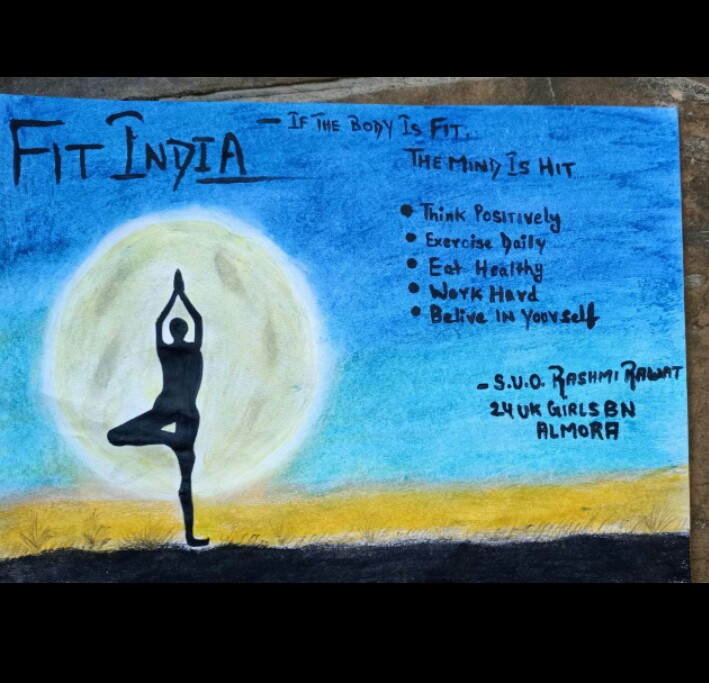 FIT INDIA - IF THE BODY IS FIT,
THE MIND IS HIT
• Think Positively
• Exercise Daily
• Eat Healthy
• Work Hard
• Belive IN Yourself
- S.U.O. RASHMI RAWAT
24 UK GIRLS BN
ALMORA